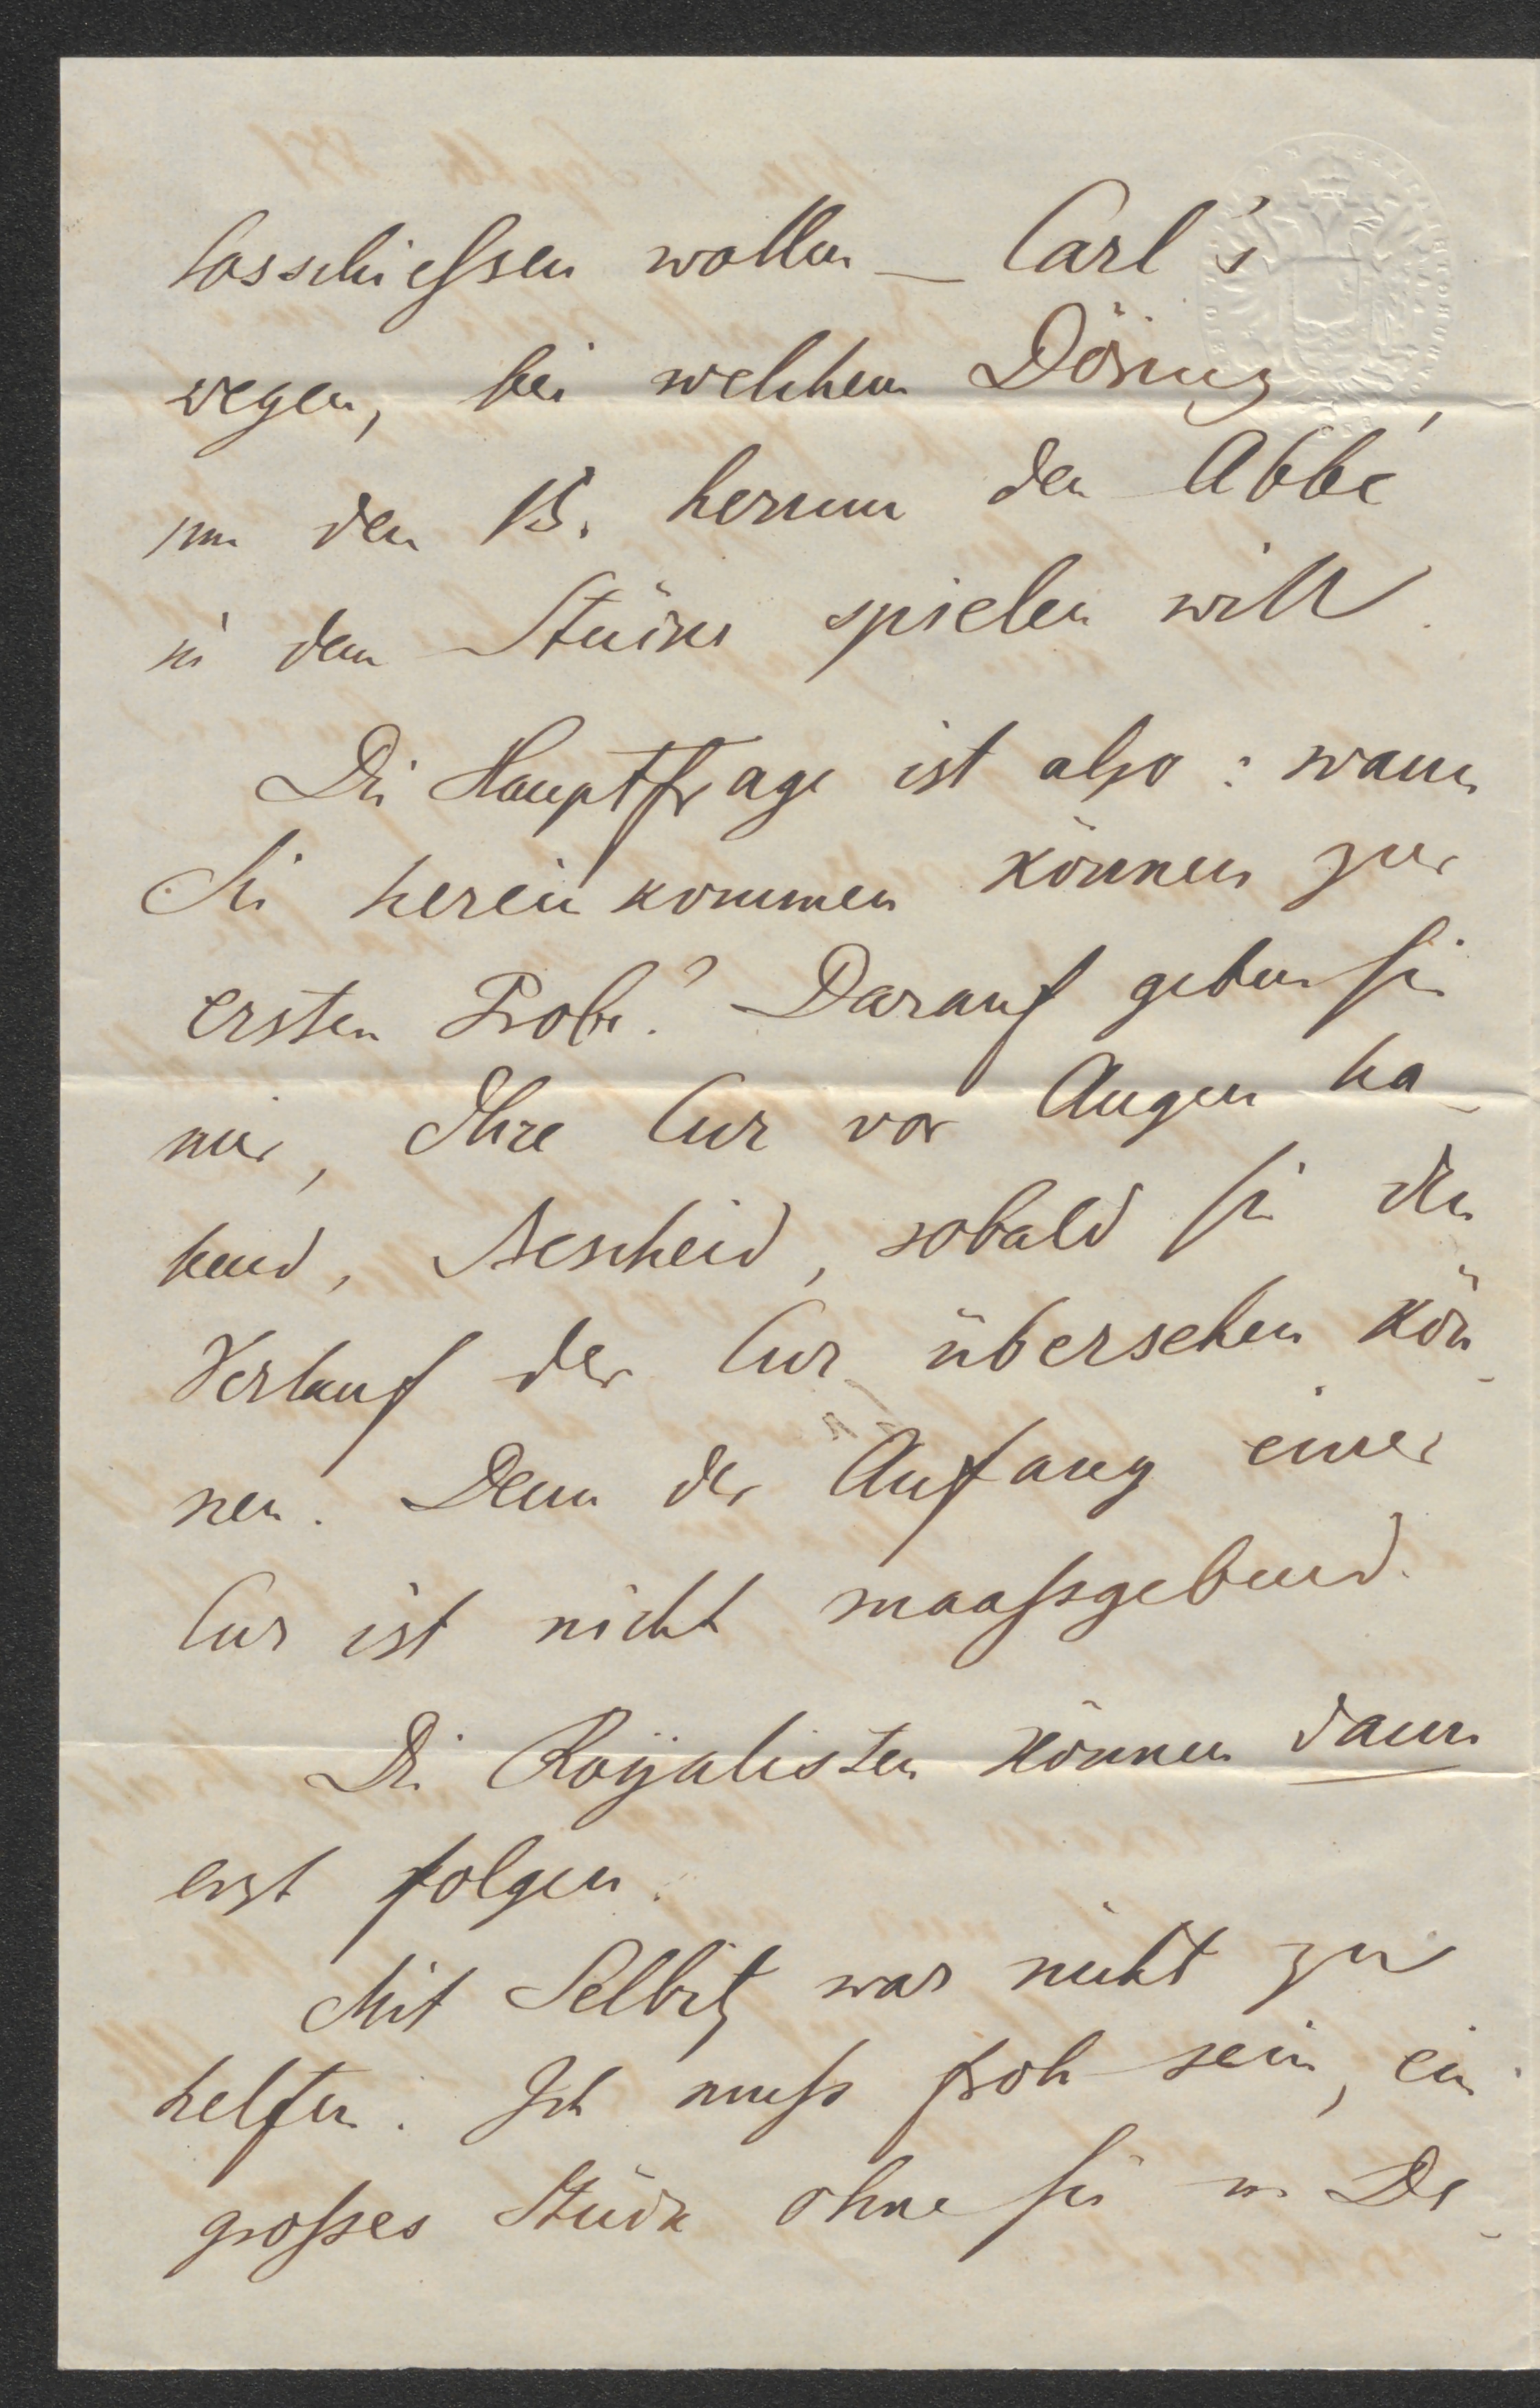 losschiessen wollen — Carl's
wegen, bei welchem Döring,
um den 15. herum den Abbé
in dem Stücke spielen will.
Die Hauptfrage ist also: wann
Sie herein kommen können zur
ersten Probe? Darauf geben Sie
mir, Ihre Cur vor Augen ha-
bend, Bescheid, sobald Sie den
Verlauf der Cur übersehen kön-
nen. Denn der Anfang einer
Cur ist nicht maassgebend.
Die Royalisten können dann
erst folgen.
Mit Selbitz war nicht zu
helfen. Ich muss froh sein, ein
grosses Stück ohne Sie in De-